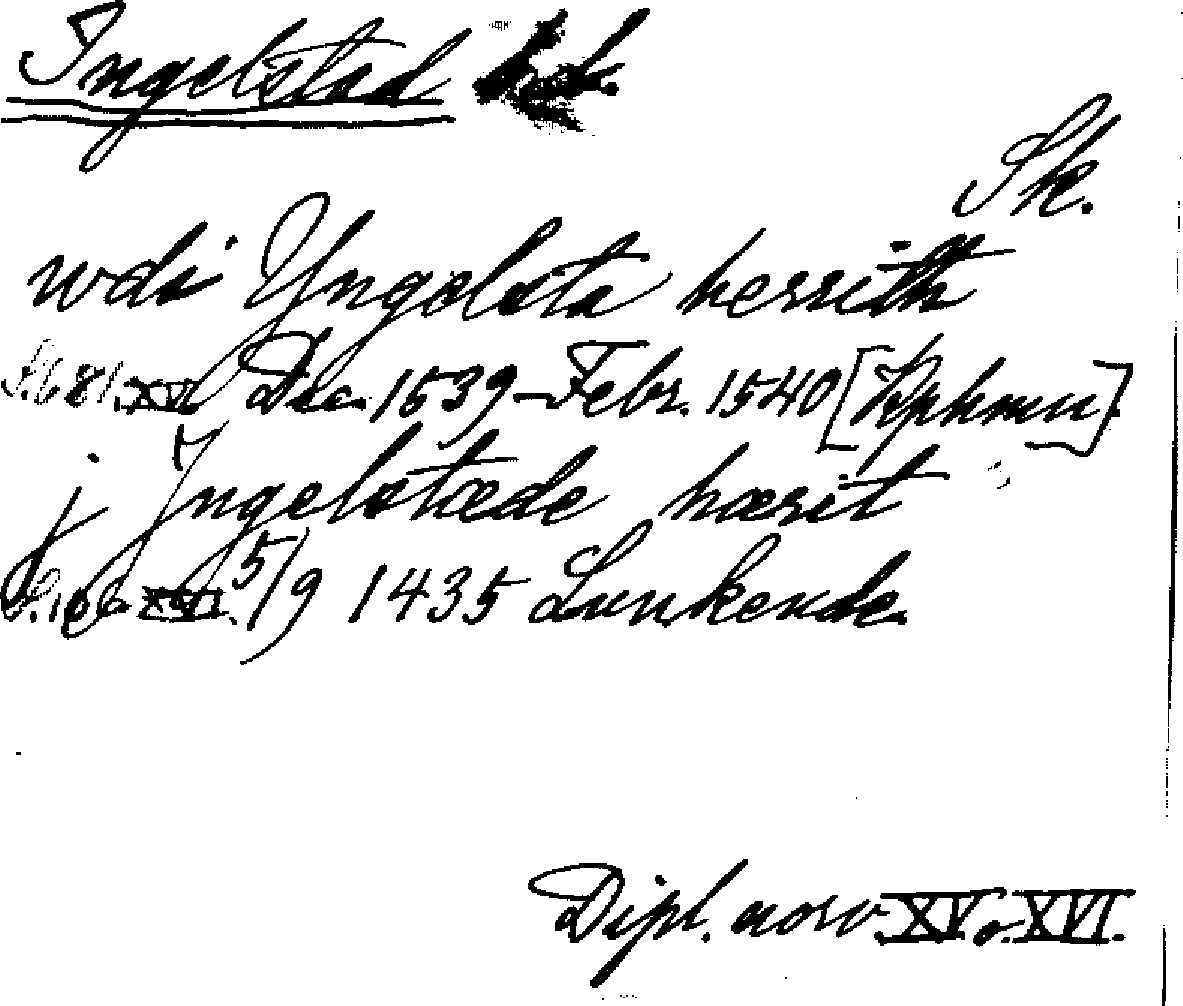 Ingelstad hd.
Sk.
wdi Yngelsta herrith
S. 681 XV Dec. 1539-Febr. 1540 [Kphmn]
j Jngelstæde hærit
S. 166 XVI. 5/9 1435 Lunkende.
Dipl. norv. XV o. XVI.